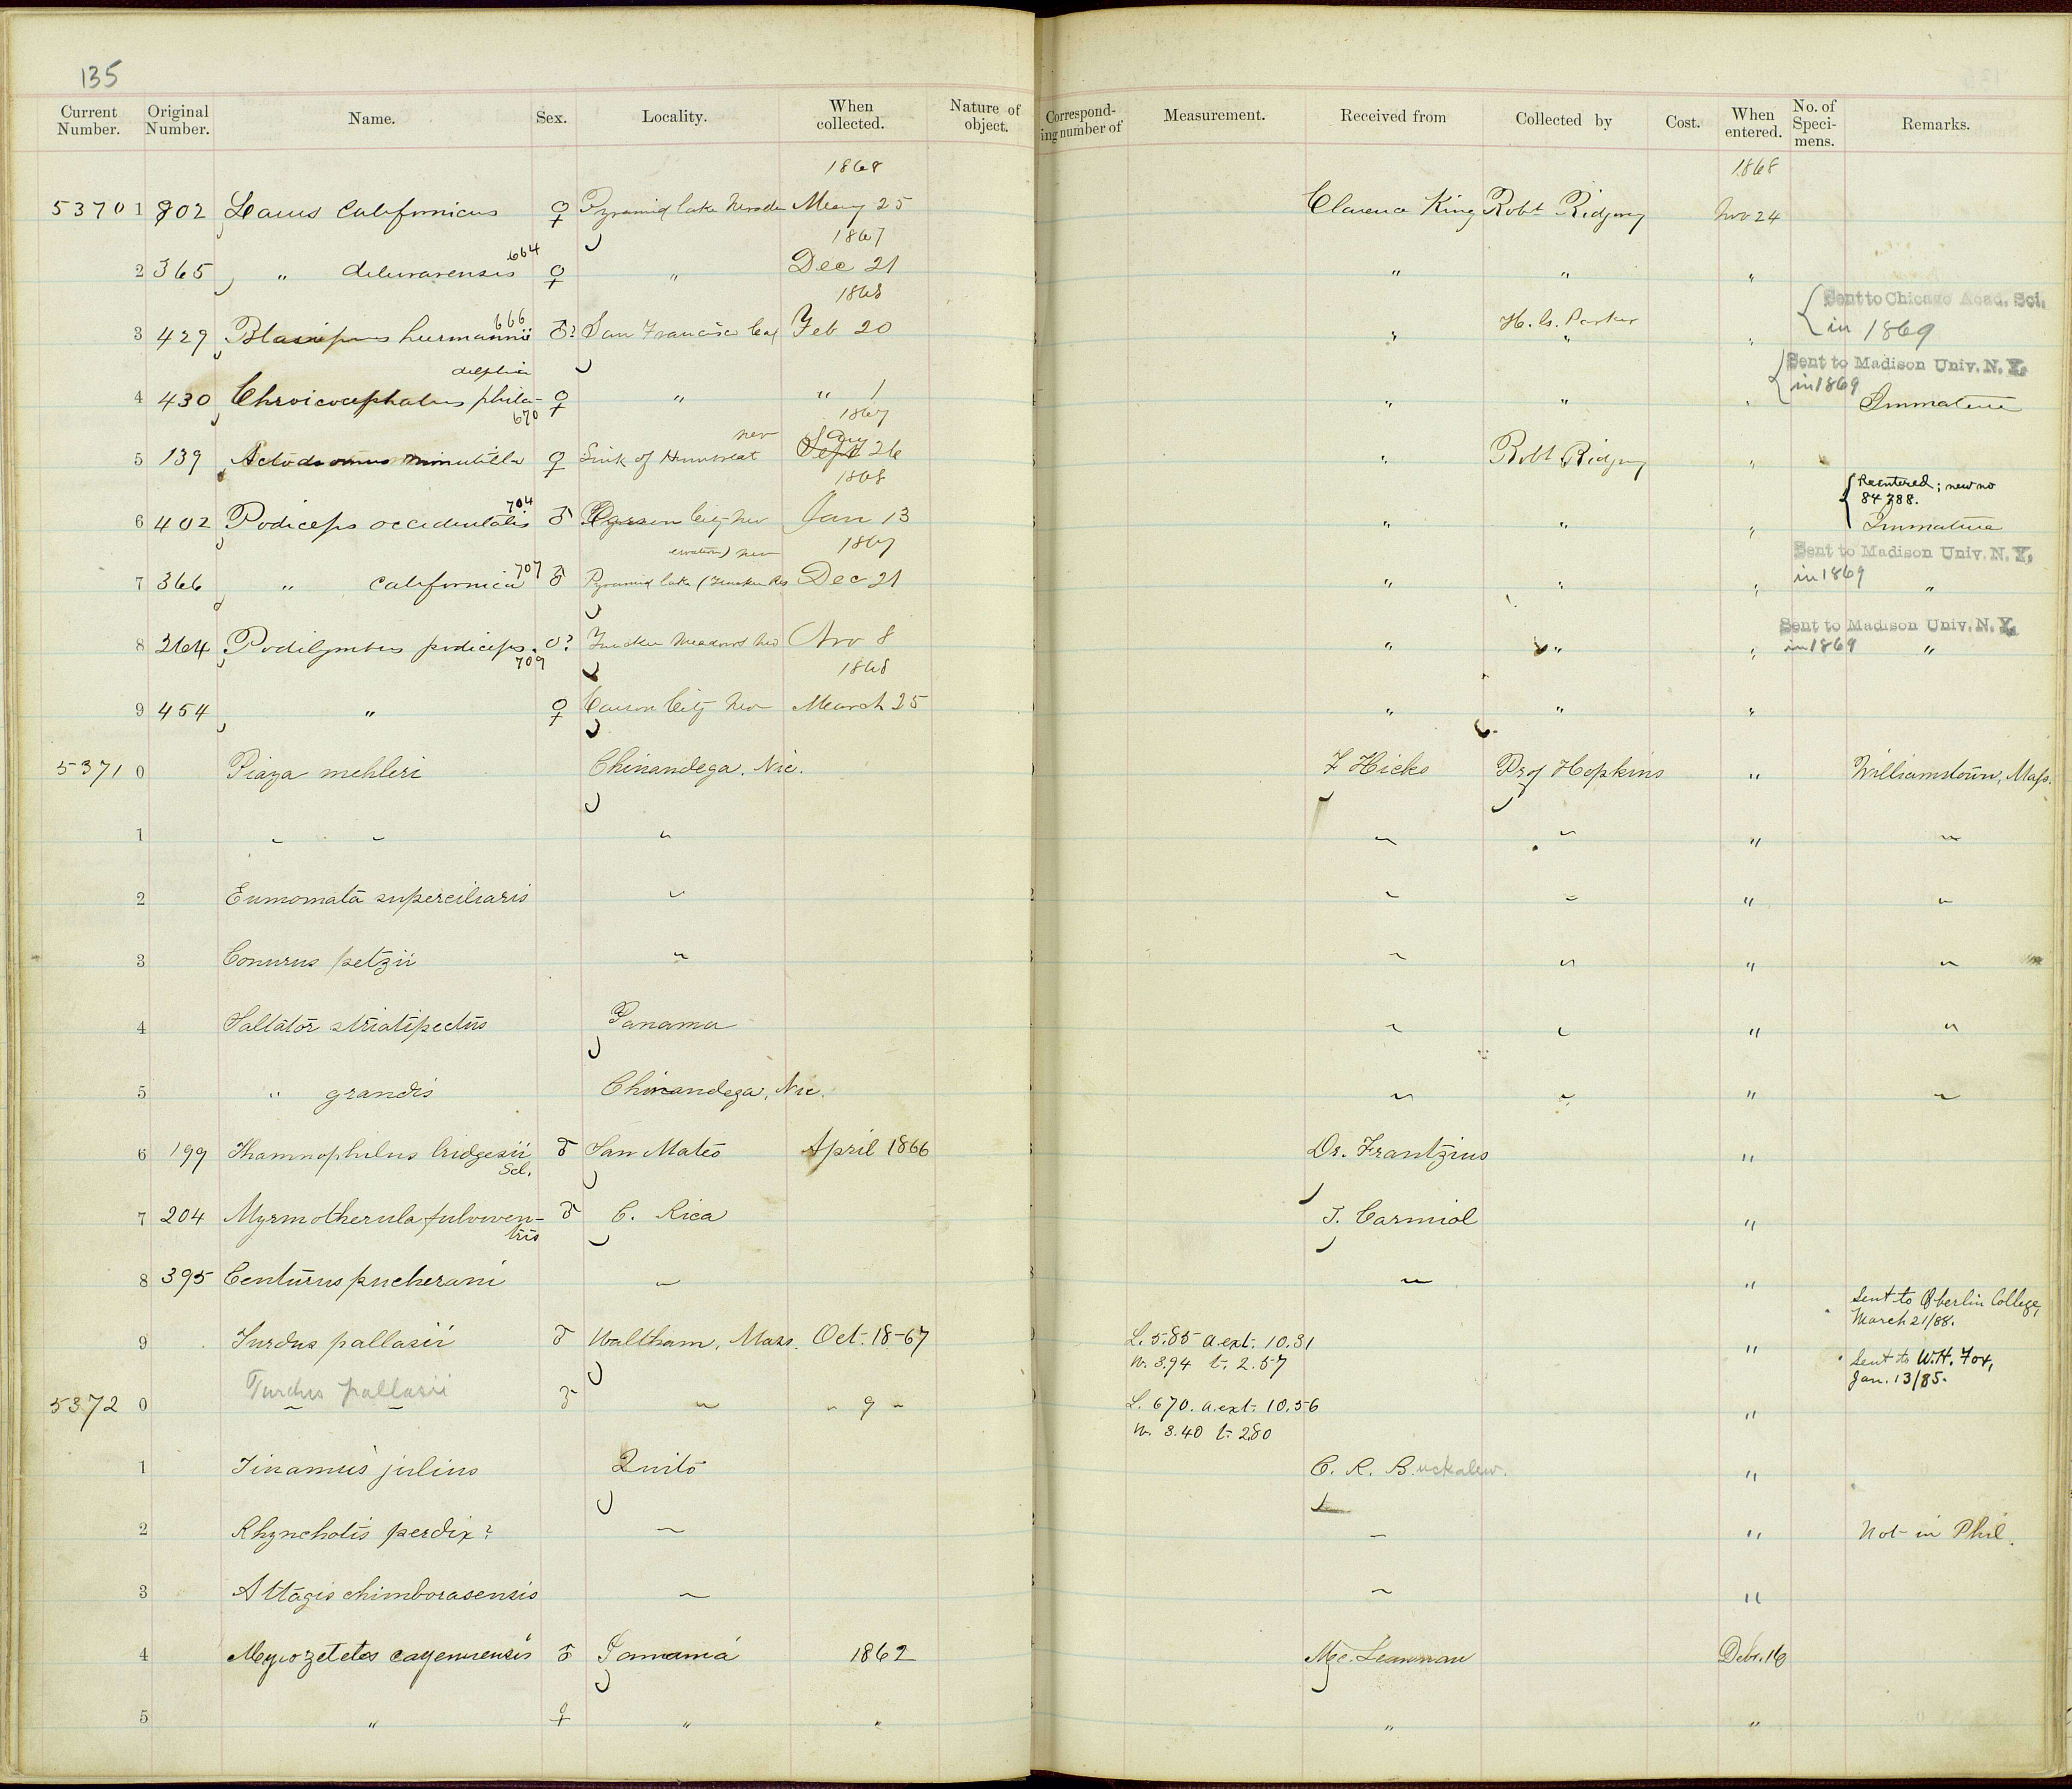 135
Current Number. Original Number. Name. Sex. Locality. When collected. Nature of object. Corresponding number of Measurement. Received from Collected by Cost. When entered. No. of Specimens. Remarks.
1868 1868
53701 802 Larus Californicus ♀ Pyramid lake Nevada May 25 Clarence King Robt Ridgway Nov 24
664 1867
2 365 " delawarensis ♀ " Dec 21 " " "
666 1868
3 429 Blasipus heermannii ♂? San Francisco Cal Feb 20 " H. G. Parker " " { Sent to Chicago Acad. Sci. in 1869
4 430 Chroicocephalus philadelphia 670 ♀ " " 1 " " " { Sent to Madison Univ. N. Y. in 1869 Immature
1867
5 139 Actodromus minutilla ♀ Sink of Humboldt Nev Sept Aug 26 " Robt Ridgway "
1868
6 402 Podiceps occidentalis 704 ♂ Carson City Nev Jan 13 " " " { Reentered; new no 84788. Immature
1867
7 366 " Californica 707 ♂ Pyramid lake (Truckee Reservation) Nev Dec 21 " " " Sent to Madison Univ. N. Y. in 1869 "
8 264 Podilymbus podiceps. 709 ♂? Truckee Meadows Nev Nov 8 " " " Sent to Madison Univ. N. Y. in 1869 "
1868
9 454 " ♀ Carson City Nev March 25 " " "
53710 Piaya mehleri Chinandega. Nic. F Hicks Prof Hopkins " Williamstown, Mass.
1 " " " " " " "
2 Eumomata superciliaris " " " " "
3 Conurus petzii " " " " "
4 Saltator striatipectus Panama " " " "
5 " grandis Chinandega, Nic. " " " "
6 199 Thamnophilus bridgesii Scl. ♂ San Mateo April 1866 Dr. Frantzius "
7 204 Myrmotherula fulviventris ♂ C. Rica J. Carmiol "
8 395 Centurus pucherani " " "
9 Turdus pallasii ♂ Waltham, Mass. Oct. 18-67 L. 5.85 a.ext. 10.31 "
W. 3.94 t. 2.57
Sent to Oberlin College, March 21/88.
53720 Turdus pallasii ♂ " " 9 " L. 670. a.ext. 10.56 "
W. 3.40 t. 280
Sent to W.H. Fox, Jan. 13/85.
1 Tinamus julius Quito C. R. Buckalew. "
2 Rhynchotis perdix? " " " Not in Phil.
3 Attagis chimborasensis " " "
4 Myiozetetes cayennensis ♂ Panama 1862 Mc. Leannan Debr. 16
5 " ♀ " " " "